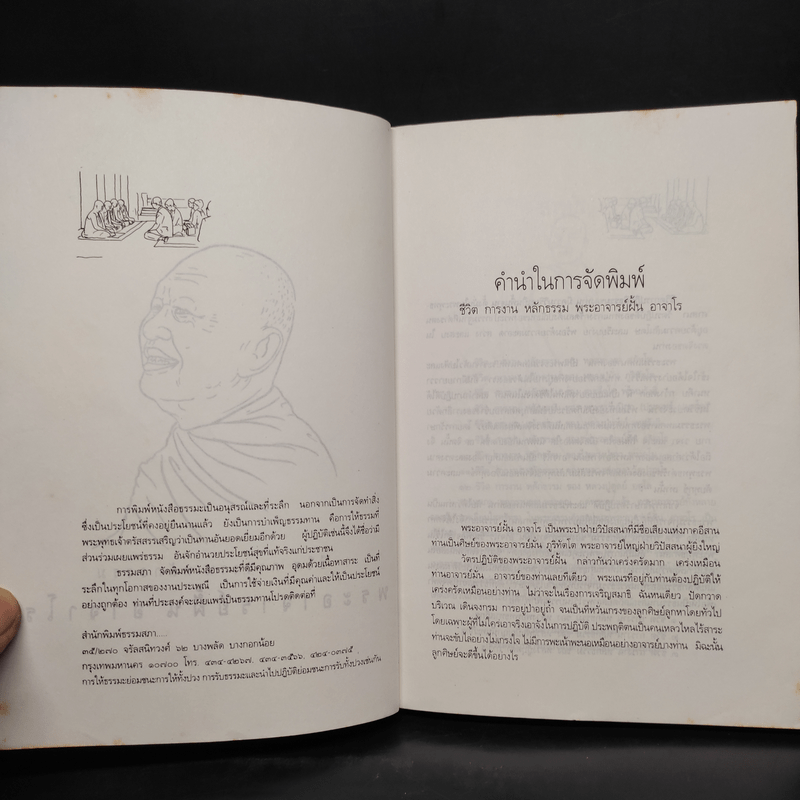 การพิมพ์หนังสือธรรมะเป็นอนุสรณ์และที่ระลึก นอกจากเป็นการจัดทำสิ่ง
ซึ่งเป็นประโยชน์ที่คงอยู่ยืนนานแล้ว ยังเป็นการบำเพ็ญธรรมทาน คือการให้ธรรมที่
พระพุทธเจ้าตรัสสรรเสริญว่าเป็นทานอันยอดเยี่ยมอีกด้วย ผู้ปฏิบัติเช่นนี้จึงได้ชื่อว่ามี
ส่วนร่วมเผยแพร่ธรรม อันจักอำนวยประโยชน์สุขที่แท้จริงแก่ประชาชน
ธรรมสภา จัดพิมพ์หนังสือธรรมะที่ดีมีคุณภาพ อุดมด้วยเนื้อหาสาระ เป็นที่
ระลึกในทุกโอกาสของงานประเพณี เป็นการใช้จ่ายเงินที่มีคุณค่าและให้เป็นประโยชน์
อย่างถูกต้อง ท่านที่ประสงค์จะเผยแพร่เป็นธรรมทานโปรดติดต่อที่
สำนักพิมพ์ธรรมสภา...
๓๕/๒๗๐ จรัลสนิทวงศ์ ๖๒ บางพลัด บางกอกน้อย
กรุงเทพมหานคร ๑๐๗๐๐ โทร. ๔๓๔-๔๒๖๗, ๔๓๔-๓๕๖๖, ๔๒๔-๐๓๗๕
การให้ธรรมะย่อมชนะการให้ทั้งปวง การรับธรรมะและนำไปปฏิบัติย่อมชนะการรับทั้งปวงเช่นกัน
คำนำในการจัดพิมพ์
ชีวิต การงาน หลักธรรม พระอาจารย์ฝั้น อาจาโร
พระอาจารย์ฝั้น อาจาโร เป็นพระป่าฝ่ายวิปัสสนาที่มีชื่อเสียงแห่งภาคอีสาน
ท่านเป็นศิษย์ของพระอาจารย์มั่น ภูริทัตโต พระอาจารย์ใหญ่ฝ่ายวิปัสสนาผู้ยิ่งใหญ่
วัตรปฏิบัติของพระอาจารย์ฝั้น กล่าวกันว่าเคร่งครัดมาก เคร่งเหมือน
ท่านอาจารย์มั่น อาจารย์ของท่านเลยทีเดียว พระเณรที่อยู่กับท่านต้องปฏิบัติให้
เคร่งครัดเหมือนอย่างท่าน ไม่ว่าจะในเรื่องการเจริญสมาธิ ฉันหนเดียว ปัดกวาด
บริเวณ เดินจงกรม การอยู่ป่าอยู่ถ้ำ จนเป็นที่หวั่นเกรงของลูกศิษย์ลูกหาโดยทั่วไป
โดยเฉพาะผู้ที่ไม่ใคร่เอาจริงเอาจังในการปฏิบัติ ประพฤติตนเป็นคนเหลวไหลไร้สาระ
ท่านจะขับไล่อย่างไม่เกรงใจ ไม่มีการพะเน้าพะนอเหมือนอย่างอาจารย์บางท่าน มิฉะนั้น
ลูกศิษย์จะดีขึ้นได้อย่างไร